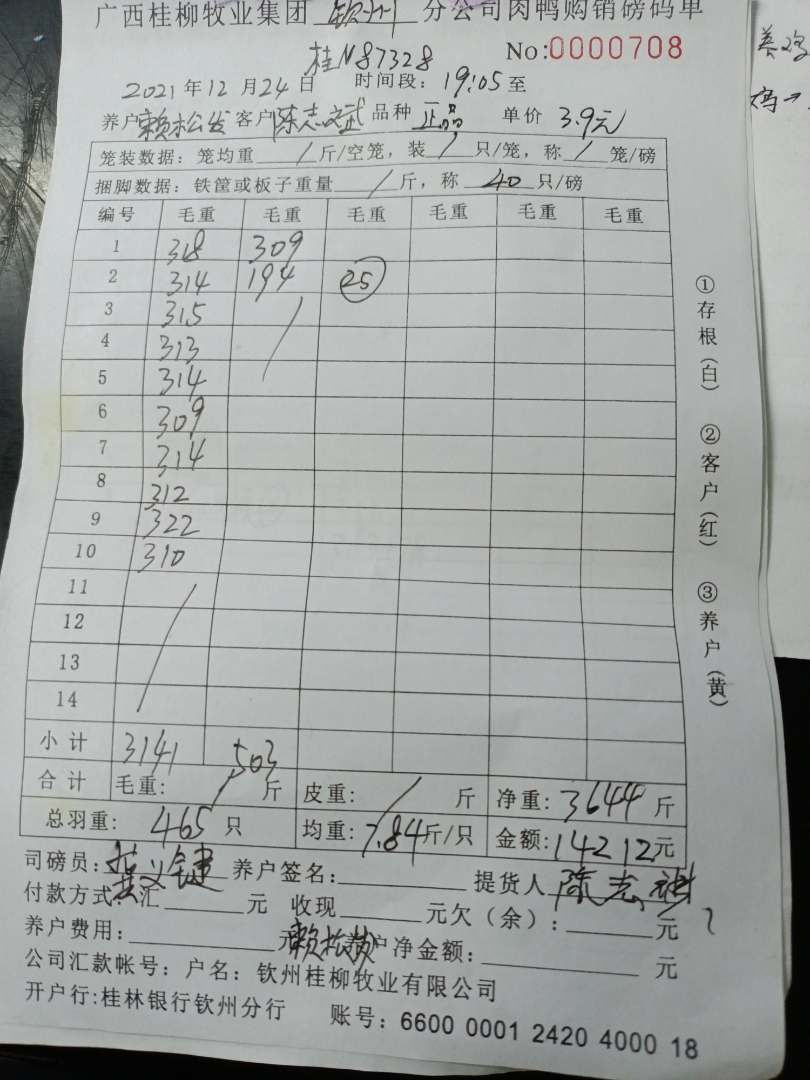 广西桂柳牧业集团 钦州 分公司肉鸭购销磅码单
桂N87328 No:0000708
2021年12月24日 时间段: 19:05至
养户 赖松发 客户 陈志斌 品种 正品 单价 3.9元
笼装数据: 笼均重 / 斤/空笼, 装 / 只/笼, 称 / 笼/磅
捆脚数据: 铁筐或板子重量 / 斤, 称 40 只/磅
编号 毛重 毛重 毛重 毛重 毛重 毛重
1 318 309
2 314 194 25
3 315
4 313
5 314
6 309
7 314
8 312
9 322
10 310
11
12
13
14
小计 3141 503
合计 毛重: / 斤 皮重: / 斤 净重: 3644 斤
总羽重: 465 只 均重: 7.84斤/只 金额: 14212元
司磅员: 养户签名: 提货人 陈志斌
付款方式: 汇 元 收现 元欠(余): 元
养户费用: 元 赖松发 养户净金额: 元
公司汇款帐号: 户名: 钦州桂柳牧业有限公司
开户行:桂林银行钦州分行 账号: 6600 0001 2420 4000 18
①存根(白) ②客户(红) ③养户(黄)